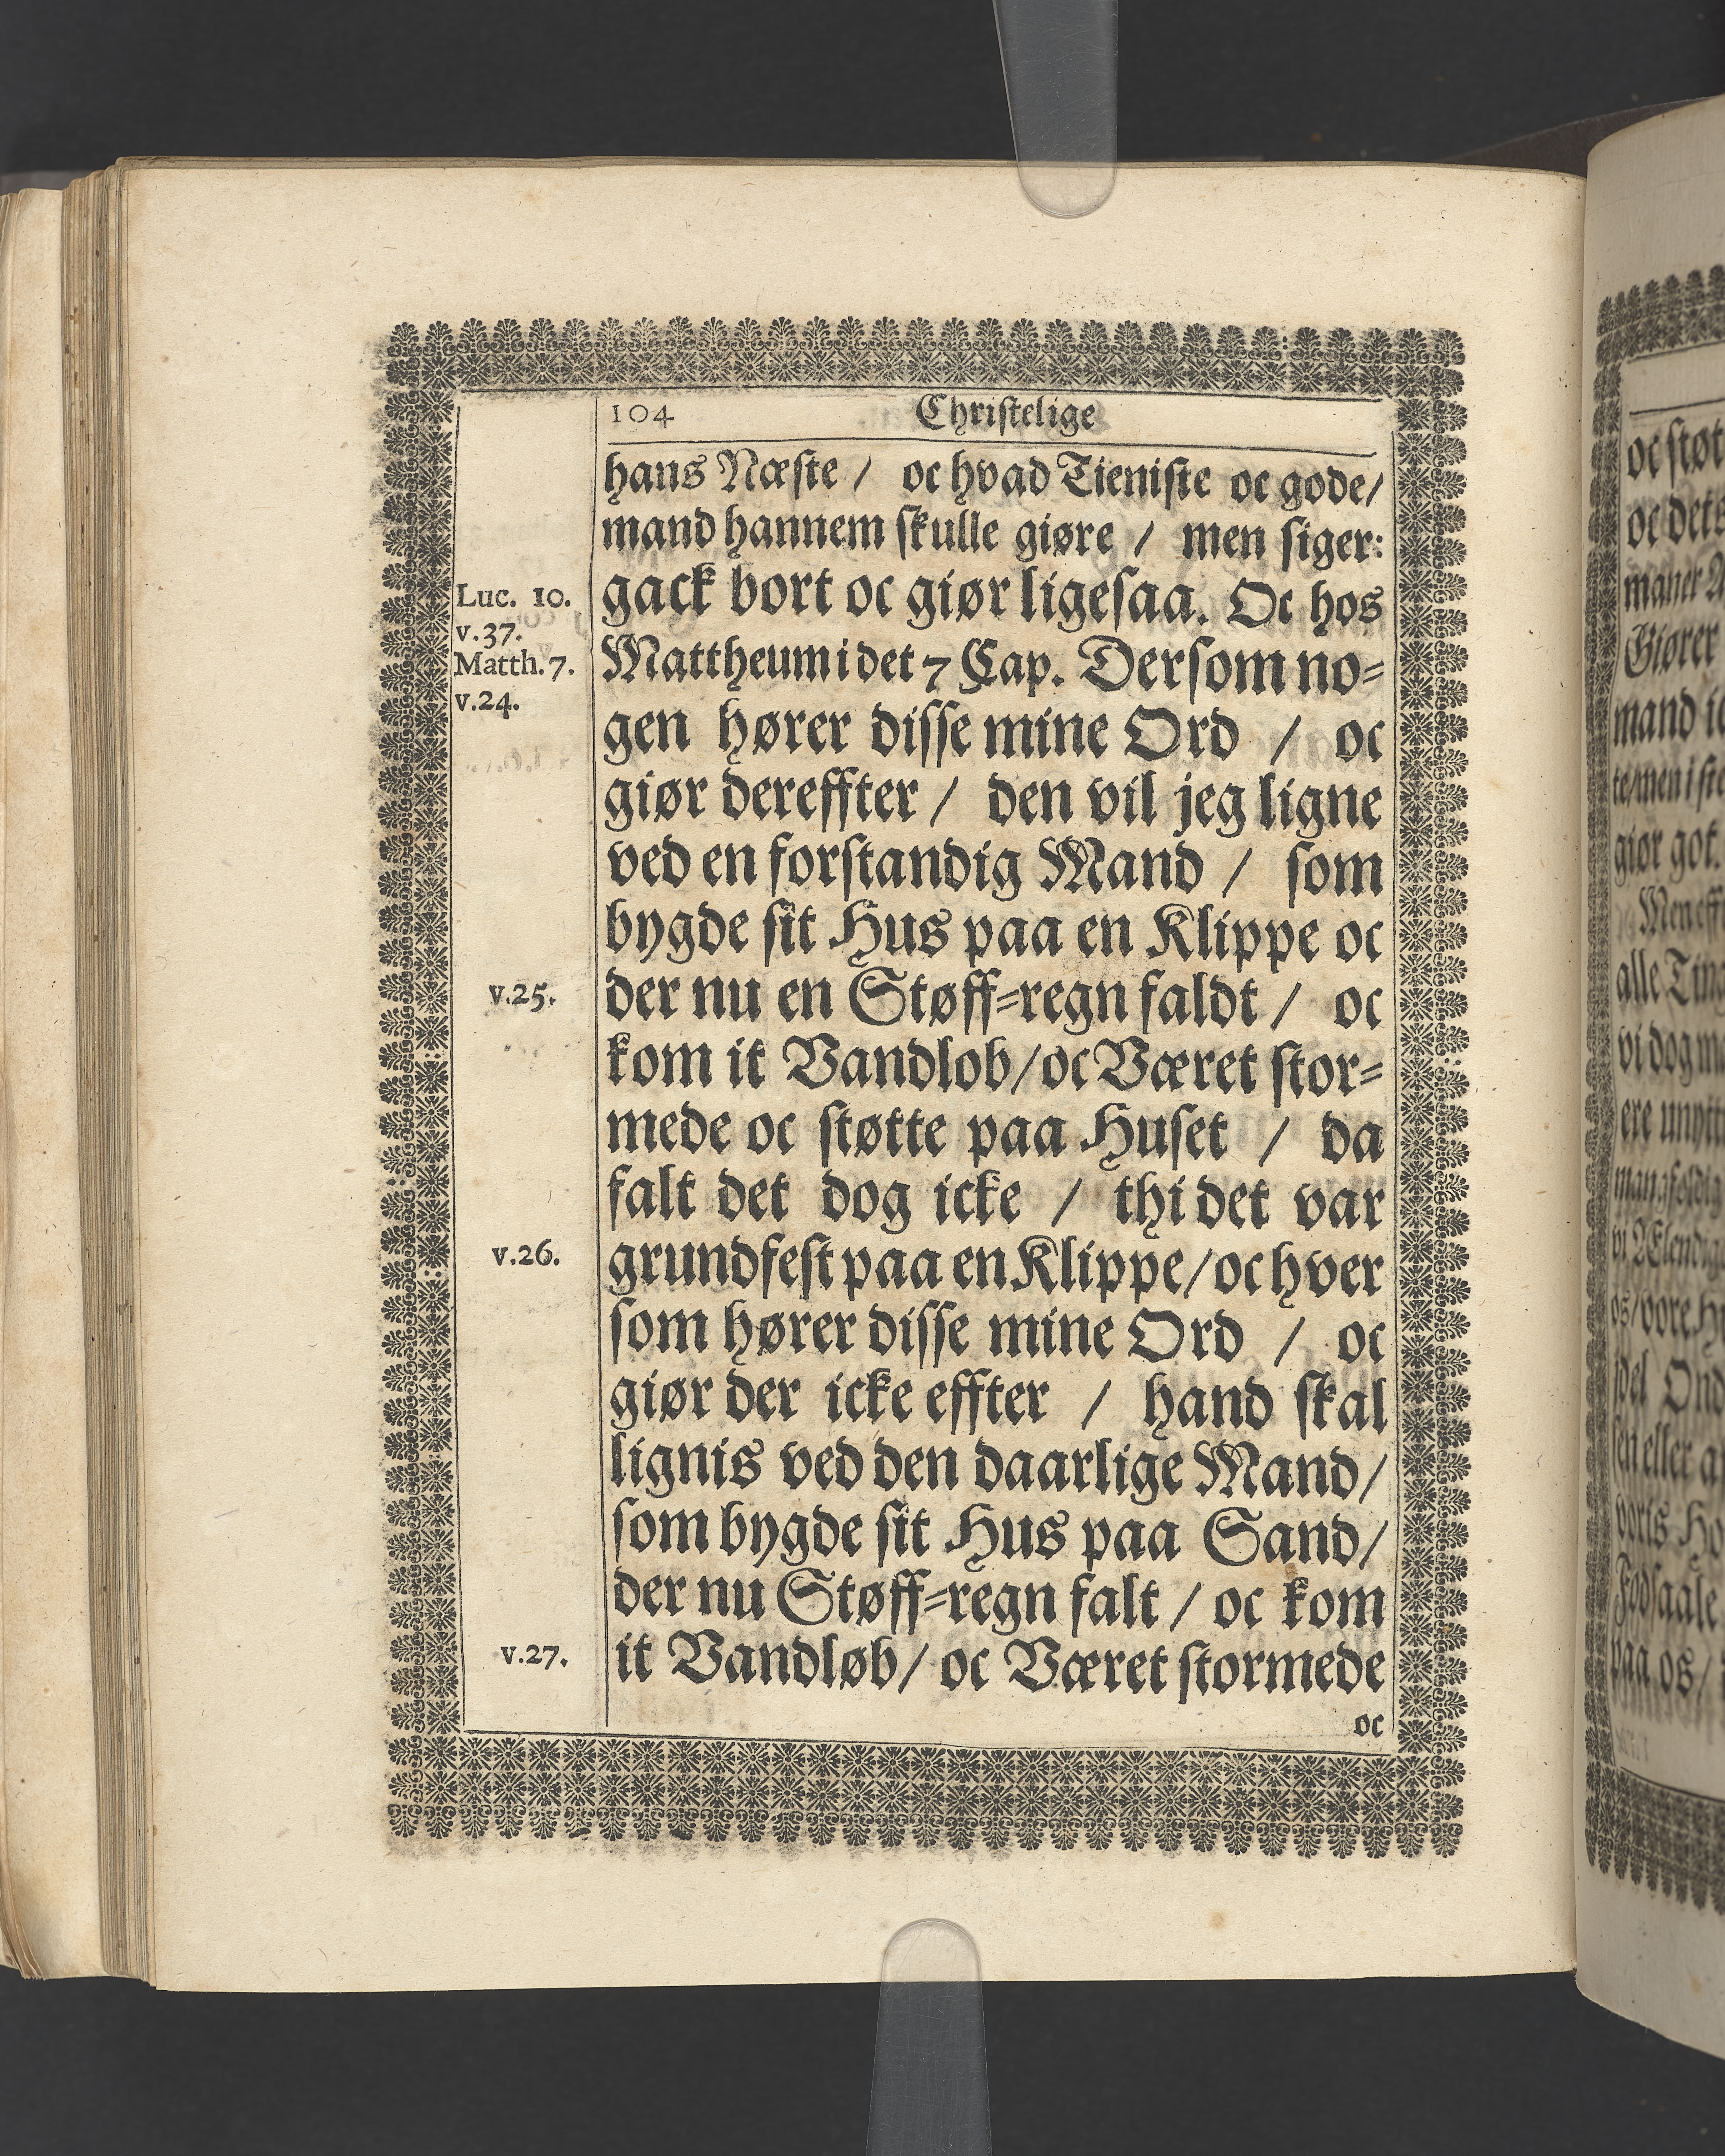 104 Christelige
hans Næste / oc hvad Tieniste oc gode/
mand hannem skulle giøre / men siger:
Luc. 10. gack bort oc giør ligesaa. Oc hos
v.37.
Matth. 7. Mattheum i det 7 Cap. Dersom no=
v.24.
gen hører disse mine Ord / oc
giør dereffter / den vil jeg ligne
ved en forstandig Mand / som
bygde sit Hus paa en Klippe oc
v.25. der nu en Støff=regn faldt / oc
kom it Vandlob/oc Været stor=
mede oc støtte paa Huset / da
falt det dog icke / thi det var
v.26. grundfest paa en Klippe/oc hver
som hører disse mine Ord / oc
giør der icke effter / hand skal
lignis ved den daarlige Mand/
som bygde sit Hus paa Sand/
der nu Støff=regn falt / oc kom
v.27. it Vandløb/ oc Været stormede
oc